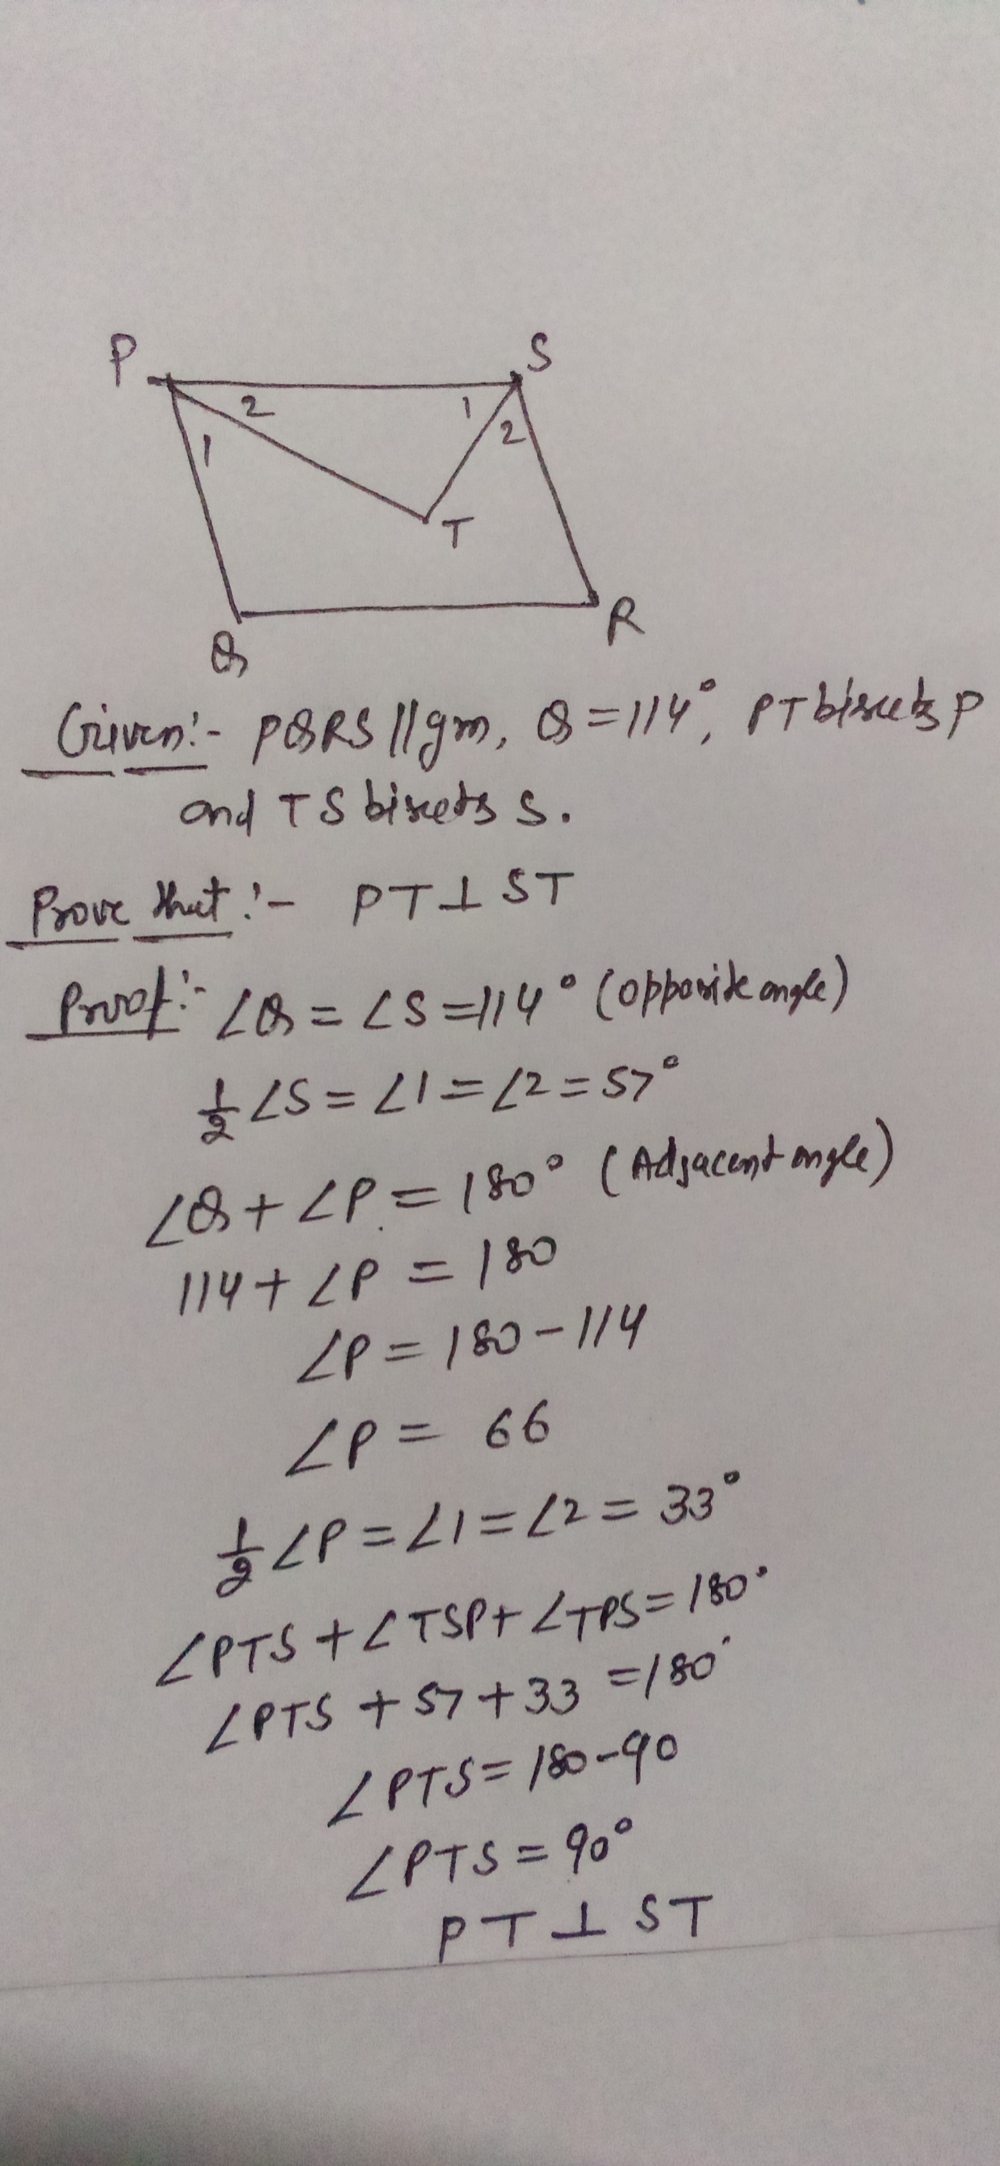 P S
2 1
1 2
T
Q R
Given:- PQRS ||gm, Q = 114°, PT bisects P
and TS bisects S.
Prove that :- PT ⊥ ST
Proof:- ∠Q = ∠S = 114° (opposite angle)
1/2 ∠S = ∠1 = ∠2 = 57°
∠Q + ∠P = 180° (Adjacent angle)
114 + ∠P = 180
∠P = 180 - 114
∠P = 66
1/2 ∠P = ∠1 = ∠2 = 33°
∠PTS + ∠TSP + ∠TPS = 180°
∠PTS + 57 + 33 = 180°
∠PTS = 180 - 90
∠PTS = 90°
PT ⊥ ST